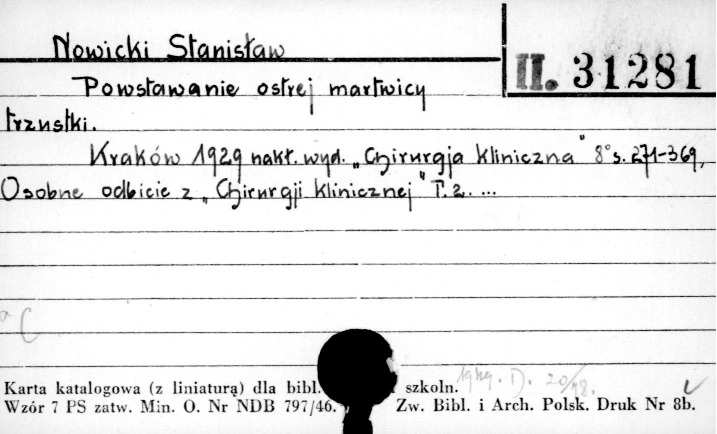 Nowicki Stanisław
II. 31281
Powstawanie ostrej martwicy
trzustki.
Kraków 1929 nakł. wyd. „Chirurgja kliniczna" 8° s. 271-369,
Osobne odbicie z „Chirurgji klinicznej" T. 2. ...
C
Karta katalogowa (z liniaturą) dla bibl. szkoln.
Wzór 7 PS zatw. Min. O. Nr NDB 797/46. Zw. Bibl. i Arch. Polsk. Druk Nr 8b.